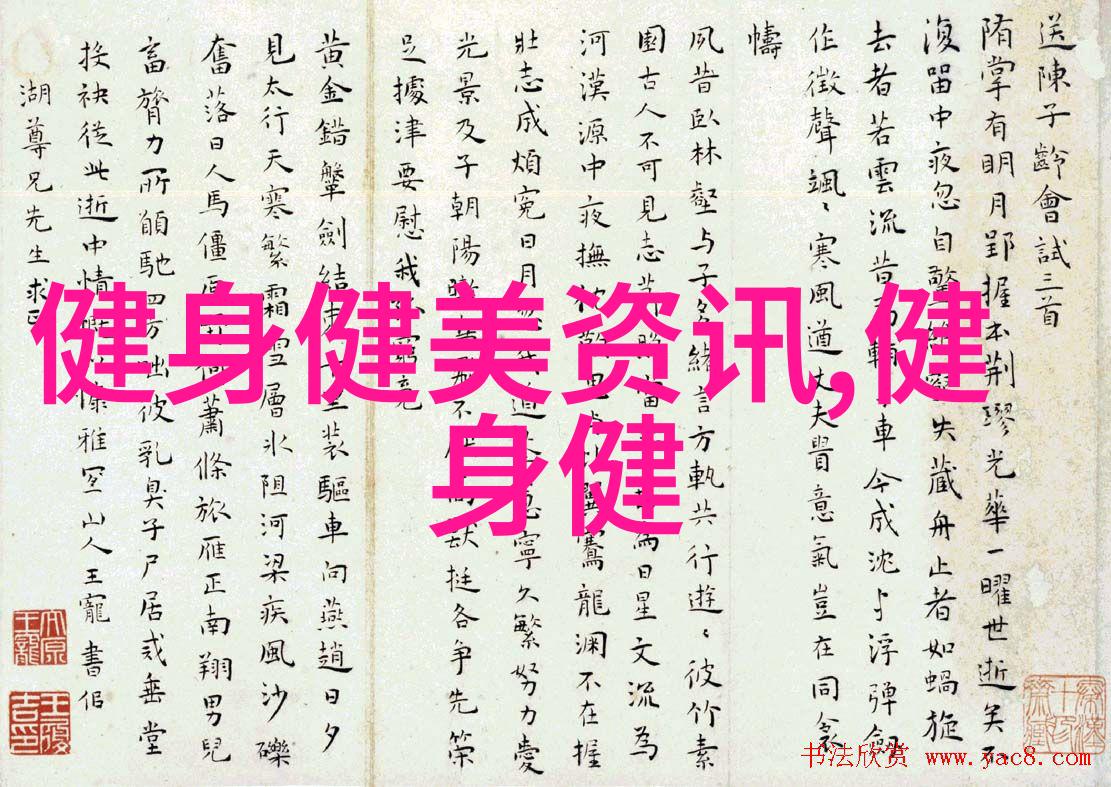 送陳子齡會試三首
隋掌有明月郢握本荆璆光華一曜世逝矣不
復留中夜忽自驚 失藏舟止者如蝸旋
去者若雲流昔 車今成沈与浮彈劍
作徵聲颯〻寒風道丈夫貴意氣豈在同衾
幬
夙昔臥林壑与子多緒言方軌共行遊〻彼竹素
園古人不可見志 為日星文流為
河漢源中夜撫 騫龍淵不在握
壯志成煩冤日月 寧久繁努力愛
光景及子朝陽 不 猷挺各争先策
足據津要慰我
黄金錯鞶劍結束 裝驅車向燕趙日夕
見太行天寒繁霜雪層冰阻河梁疾風沙礫
奮落日人馬僵 蕭條旅雁正南翔男兒
畜膂力所願馳四方咄彼乳臭子尸居戒垂堂
投袂從此逝中情 慷雅宜山人王寵書似
湖尊兄先生求正
健身健美资讯,健
身健
书法欣赏 www.yac8.com